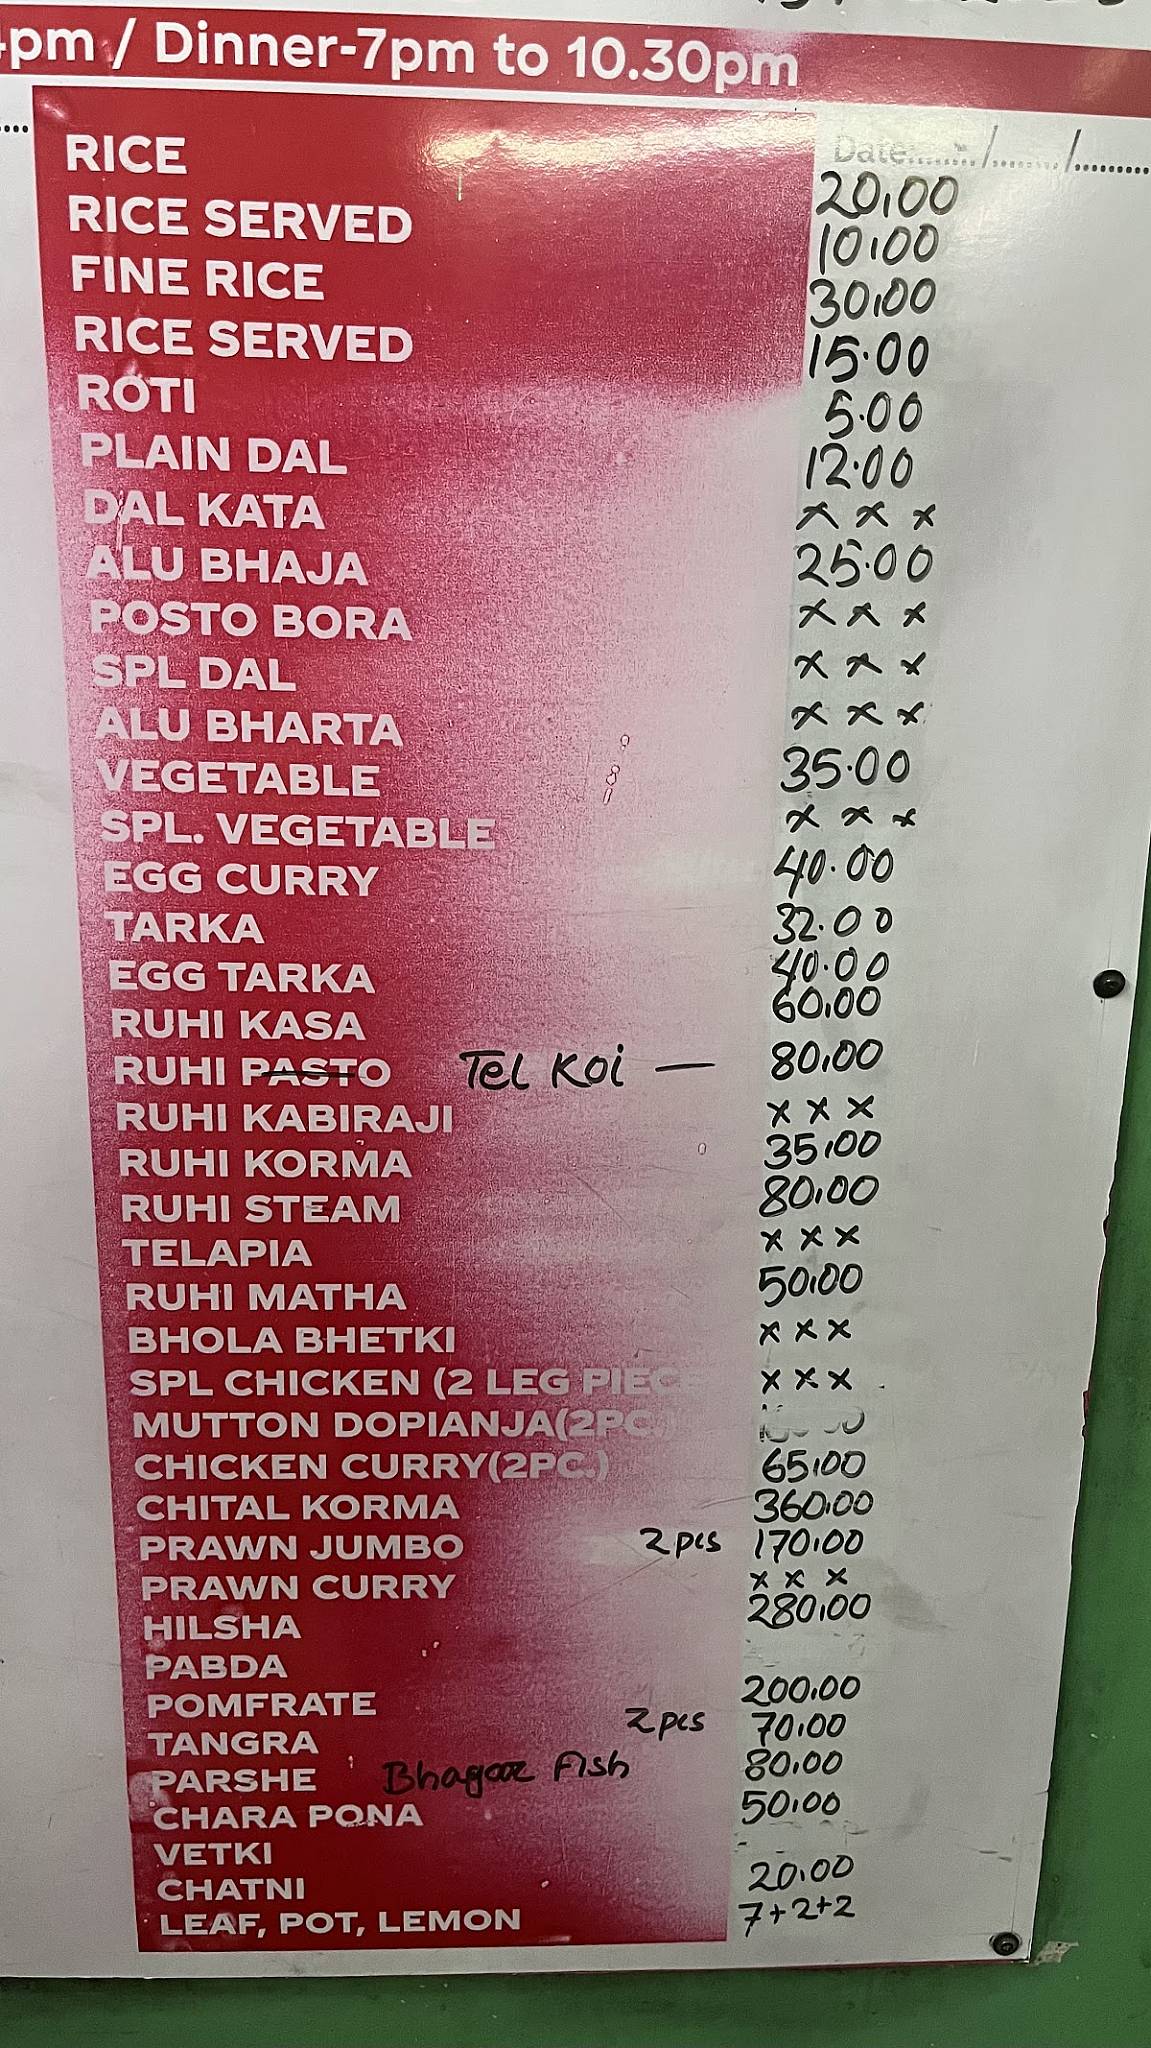 4pm / Dinner-7pm to 10.30pm
Date....../......./.........
RICE 20.00
RICE SERVED 10.00
FINE RICE 30.00
RICE SERVED 15.00
ROTI 5.00
PLAIN DAL 12.00
DAL KATA x x x
ALU BHAJA 25.00
POSTO BORA x x x
SPL DAL x x x
ALU BHARTA x x x
VEGETABLE 35.00
SPL. VEGETABLE x x x
EGG CURRY 40.00
TARKA 32.00
EGG TARKA 40.00
RUHI KASA 60.00
RUHI PASTO Tel Koi — 80.00
RUHI KABIRAJI x x x
RUHI KORMA 35.00
RUHI STEAM 80.00
TELAPIA x x x
RUHI MATHA 50.00
BHOLA BHETKI x x x
SPL CHICKEN (2 LEG PIECE x x x
MUTTON DOPIANJA(2PC.)
CHICKEN CURRY(2PC.) 65.00
CHITAL KORMA 360.00
PRAWN JUMBO 2 pcs 170.00
PRAWN CURRY x x x
HILSHA 280.00
PABDA
POMFRATE 200.00
TANGRA 2 pcs 70.00
PARSHE Bhagaar Fish 80.00
CHARA PONA 50.00
VETKI
CHATNI 20.00
LEAF, POT, LEMON 7+2+2